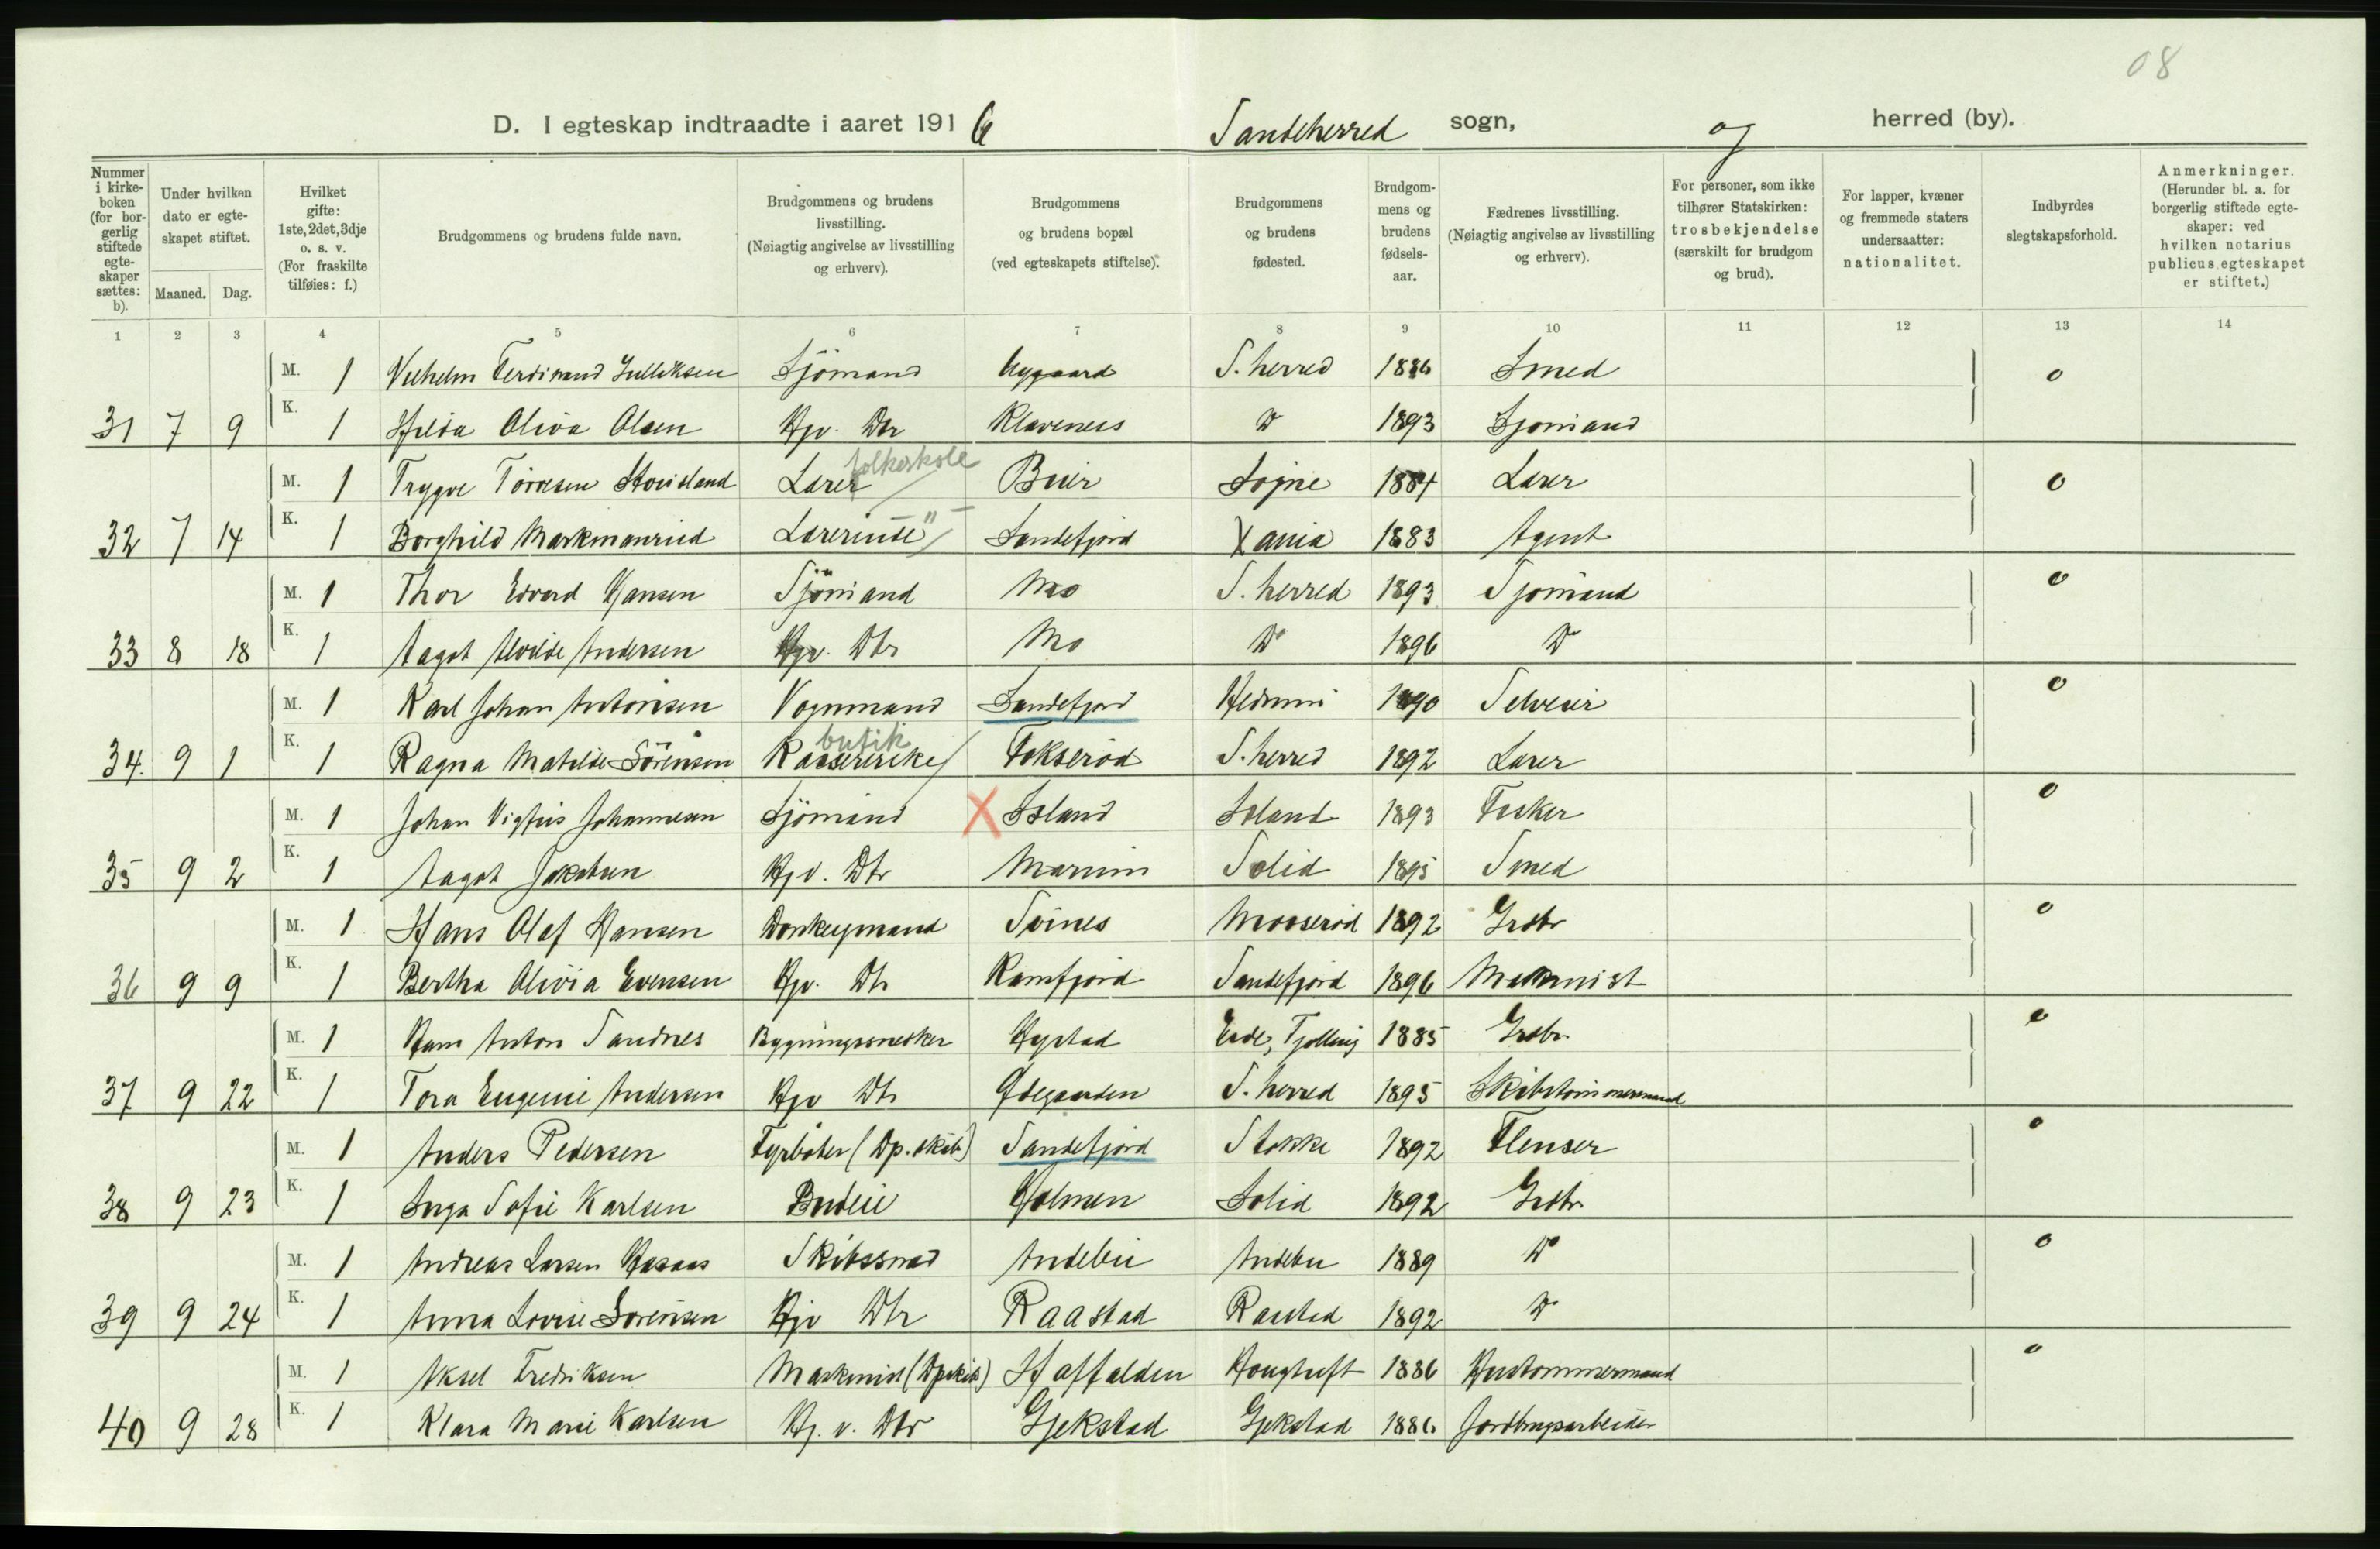 08
D. I egteskap indtraadte i aaret 1916 Sandeherred sogn, og herred (by).
Nummer i kirke-boken (for bor-gerlig stiftede egte-skaper sættes: b).
Under hvilken dato er egte-skapet stiftet.
Maaned. Dag.
Hvilket gifte: 1ste, 2det, 3dje o. s. v. (For fraskilte tilføies: f.)
Brudgommens og brudens fulde navn.
Brudgommens og brudens livsstilling. (Nøiagtig angivelse av livsstilling og erhverv).
Brudgommens og brudens bopæl (ved egteskapets stiftelse).
Brudgommens og brudens fødested.
Brudgom-mens og brudens fødsels-aar.
Fædrenes livsstilling. (Nøiagtig angivelse av livsstilling og erhverv).
For personer, som ikke tilhører Statskirken: trosbekjendelse (særskilt for brudgom og brud).
For lapper, kvæner og fremmede staters undersaatter: nationalitet.
Indbyrdes slegtskapsforhold.
Anmerkninger. (Herunder bl. a. for borgerlig stiftede egte-skaper: ved hvilken notarius publicus egteskapet er stiftet.)
1 2 3 4 5 6 7 8 9 10 11 12 13 14
M. 1 Vilhelm Ferdinand Gulliksen Sjömand Nygaard S. herred 1886 Smed 0
31 7 9 K. 1 Hilda Oliva Olsen Hjv. Dtr Klaveness Do 1893 Sjomand
folkeskole
M. 1 Trygve Törresen Lærer Buer Sogne 1884 Lærer 0
32 7 14 K. 1 Borghild Markmanrud Lærerinde — " — Sandefjord Xania 1883 Agent
M. 1 Thor Edvard Hansen Sjömand Mo S. herred 1893 Sjomand 0
33 8 18 K. 1 Aagot Alvilde Andersen Hjv. Dtr Mo Do 1896 Do
M. 1 Karl Johan Antonisen Vognmand Sandefjord Hedrum 1890 Selveier 0
butik
34. 9 1 K. 1 Ragna Matilde Sörensen Kassererske Fokseröd S. herred 1892 Lærer
M. 1 Johan Vigfus Johannesen Sjömand X Island Island 1893 Fisker 0
35 9 2 K. 1 Aagot Jakobsen Hjv. Dtr Marum Solid 1895 Smed
M. 1 Hans Olaf Hansen Donkeymand Svines Mooseröd 1892 Grdbr 0
36 9 9 K. 1 Bertha Olivia Evensen Hjv. Dtr Kamfjord Sandefjord 1896 Maskinist
M. 1 Hans Anton Sandnes Bygningssnedker Hystad Eide, Tjölling 1885 Grdbr. 0
37 9 22 K. 1 Tora Eugenie Andersen Hjv Dtr Ödegaarden S. herred 1895 Skibstömmermand
M. 1 Anders Pedersen Fyrböter (Dp. skib) Sandefjord Stokke 1892 Flenser 0
38 9 23 K. 1 Inga Sofie Karlsen Budeie Holmen Solid 1892 Grdbr
M. 1 Andreas Larsen Haasaas Skibssmed Andebu Andebu 1889 Do 0
39 9 24 K. 1 Anna Lovise Sorensen Hjv Dtr Raastad Raastad 1892 Do
M. 1 Aksel Fredriksen Maskinist (Dpskib) Haffalden Hougtuft 1886 Hustömmermand 0
40 9 28 K. 1 Klara Marie Karlsen Hj. v. Dtr Gjekstad Gjekstad 1886 Jordbrugsarbeider